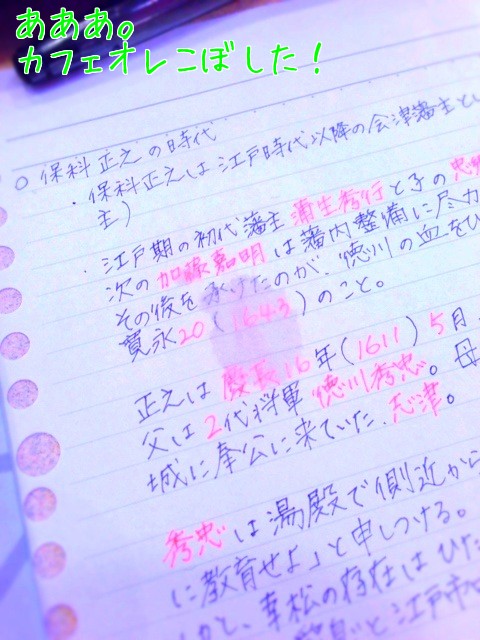 あああ。
カフェオレこぼした！
○ 保科正之の時代
・保科正之は江戸時代以降の会津藩主とし
主）
・江戸期の初代藩主 蒲生秀行と子の忠
次の加藤嘉明は藩内整備に尽力
その後を承けたのが、徳川の血をひ
寛永20（1643）のこと。
正之は 慶長16年（1611）5月
父は2代将軍 徳川秀忠。母
城に奉公に来ていた、志津。
秀忠は湯殿で側近から
に教育せよ」と申しつける。
幸松の存在はひた
江戸市